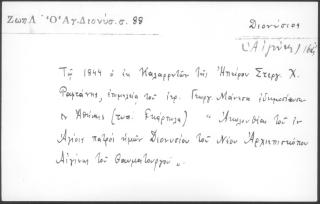 Ζωπλ Ὁ Ἁγ. Διονύσ. σ. 88
Διονύσιος
(Αἰγίνης)
Τῷ 1844 ὁ ἐκ Καλαρρυτῶν τῆς Ἠπείρου Στεργ. Χ.
Ραφτάνης, ἐπιμελείᾳ τοῦ ἱερ. Γεωργ. Μάνεση ἐδημοσίευσε
ἐν Ἀθήναις (τυπ. ) "Ἀκολουθία τοῦ ἐν
Ἁγίοις πατρὸς ἡμῶν Διονυσίου τοῦ Νέου Ἀρχιεπισκόπου
Αἰγίνης τοῦ Θαυματουργοῦ".